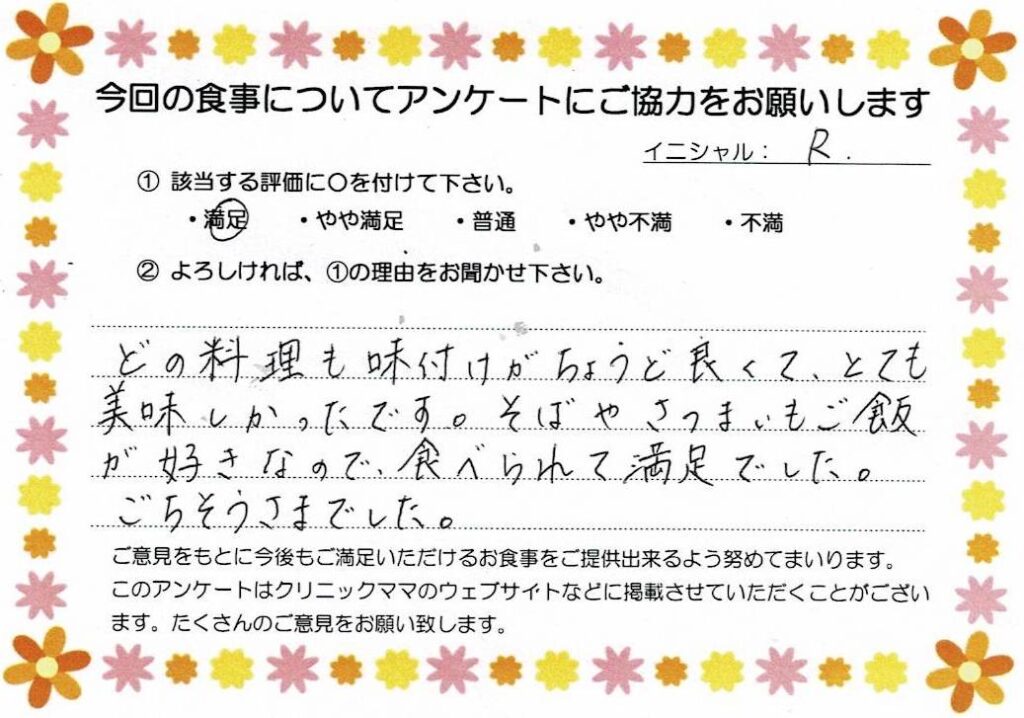 今回の食事についてアンケートにご協力をお願いします
イニシャル： R.
① 該当する評価に〇を付けて下さい。
・満足 ・やや満足 ・普通 ・やや不満 ・不満
② よろしければ、①の理由をお聞かせ下さい。
どの料理も味付けがちょうど良くて、とても
美味しかったです。そばやさつまいもご飯
が好きなので、食べられて満足でした。
ごちそうさまでした。
ご意見をもとに今後もご満足いただけるお食事をご提供出来るよう努めてまいります。
このアンケートはクリニックママのウェブサイトなどに掲載させていただくことがござい
ます。たくさんのご意見をお願い致します。